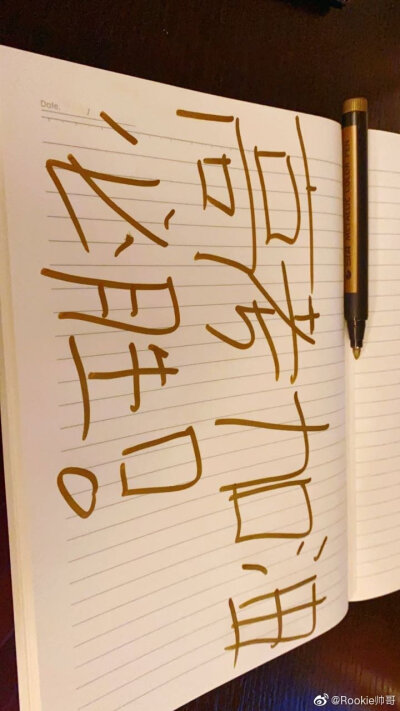 Date. /
高考加油
必胜！
@Rookie帅哥